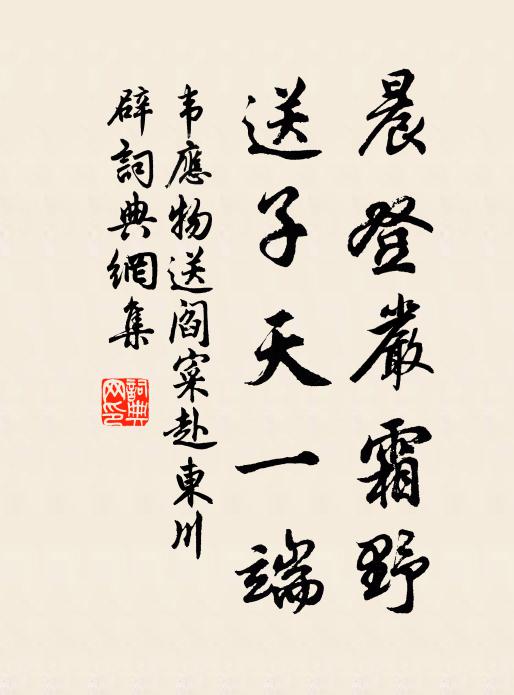 晨登嚴霜野
送子天一端
韦應物送阎寀赴東川
辟詞典網集
詞典網印